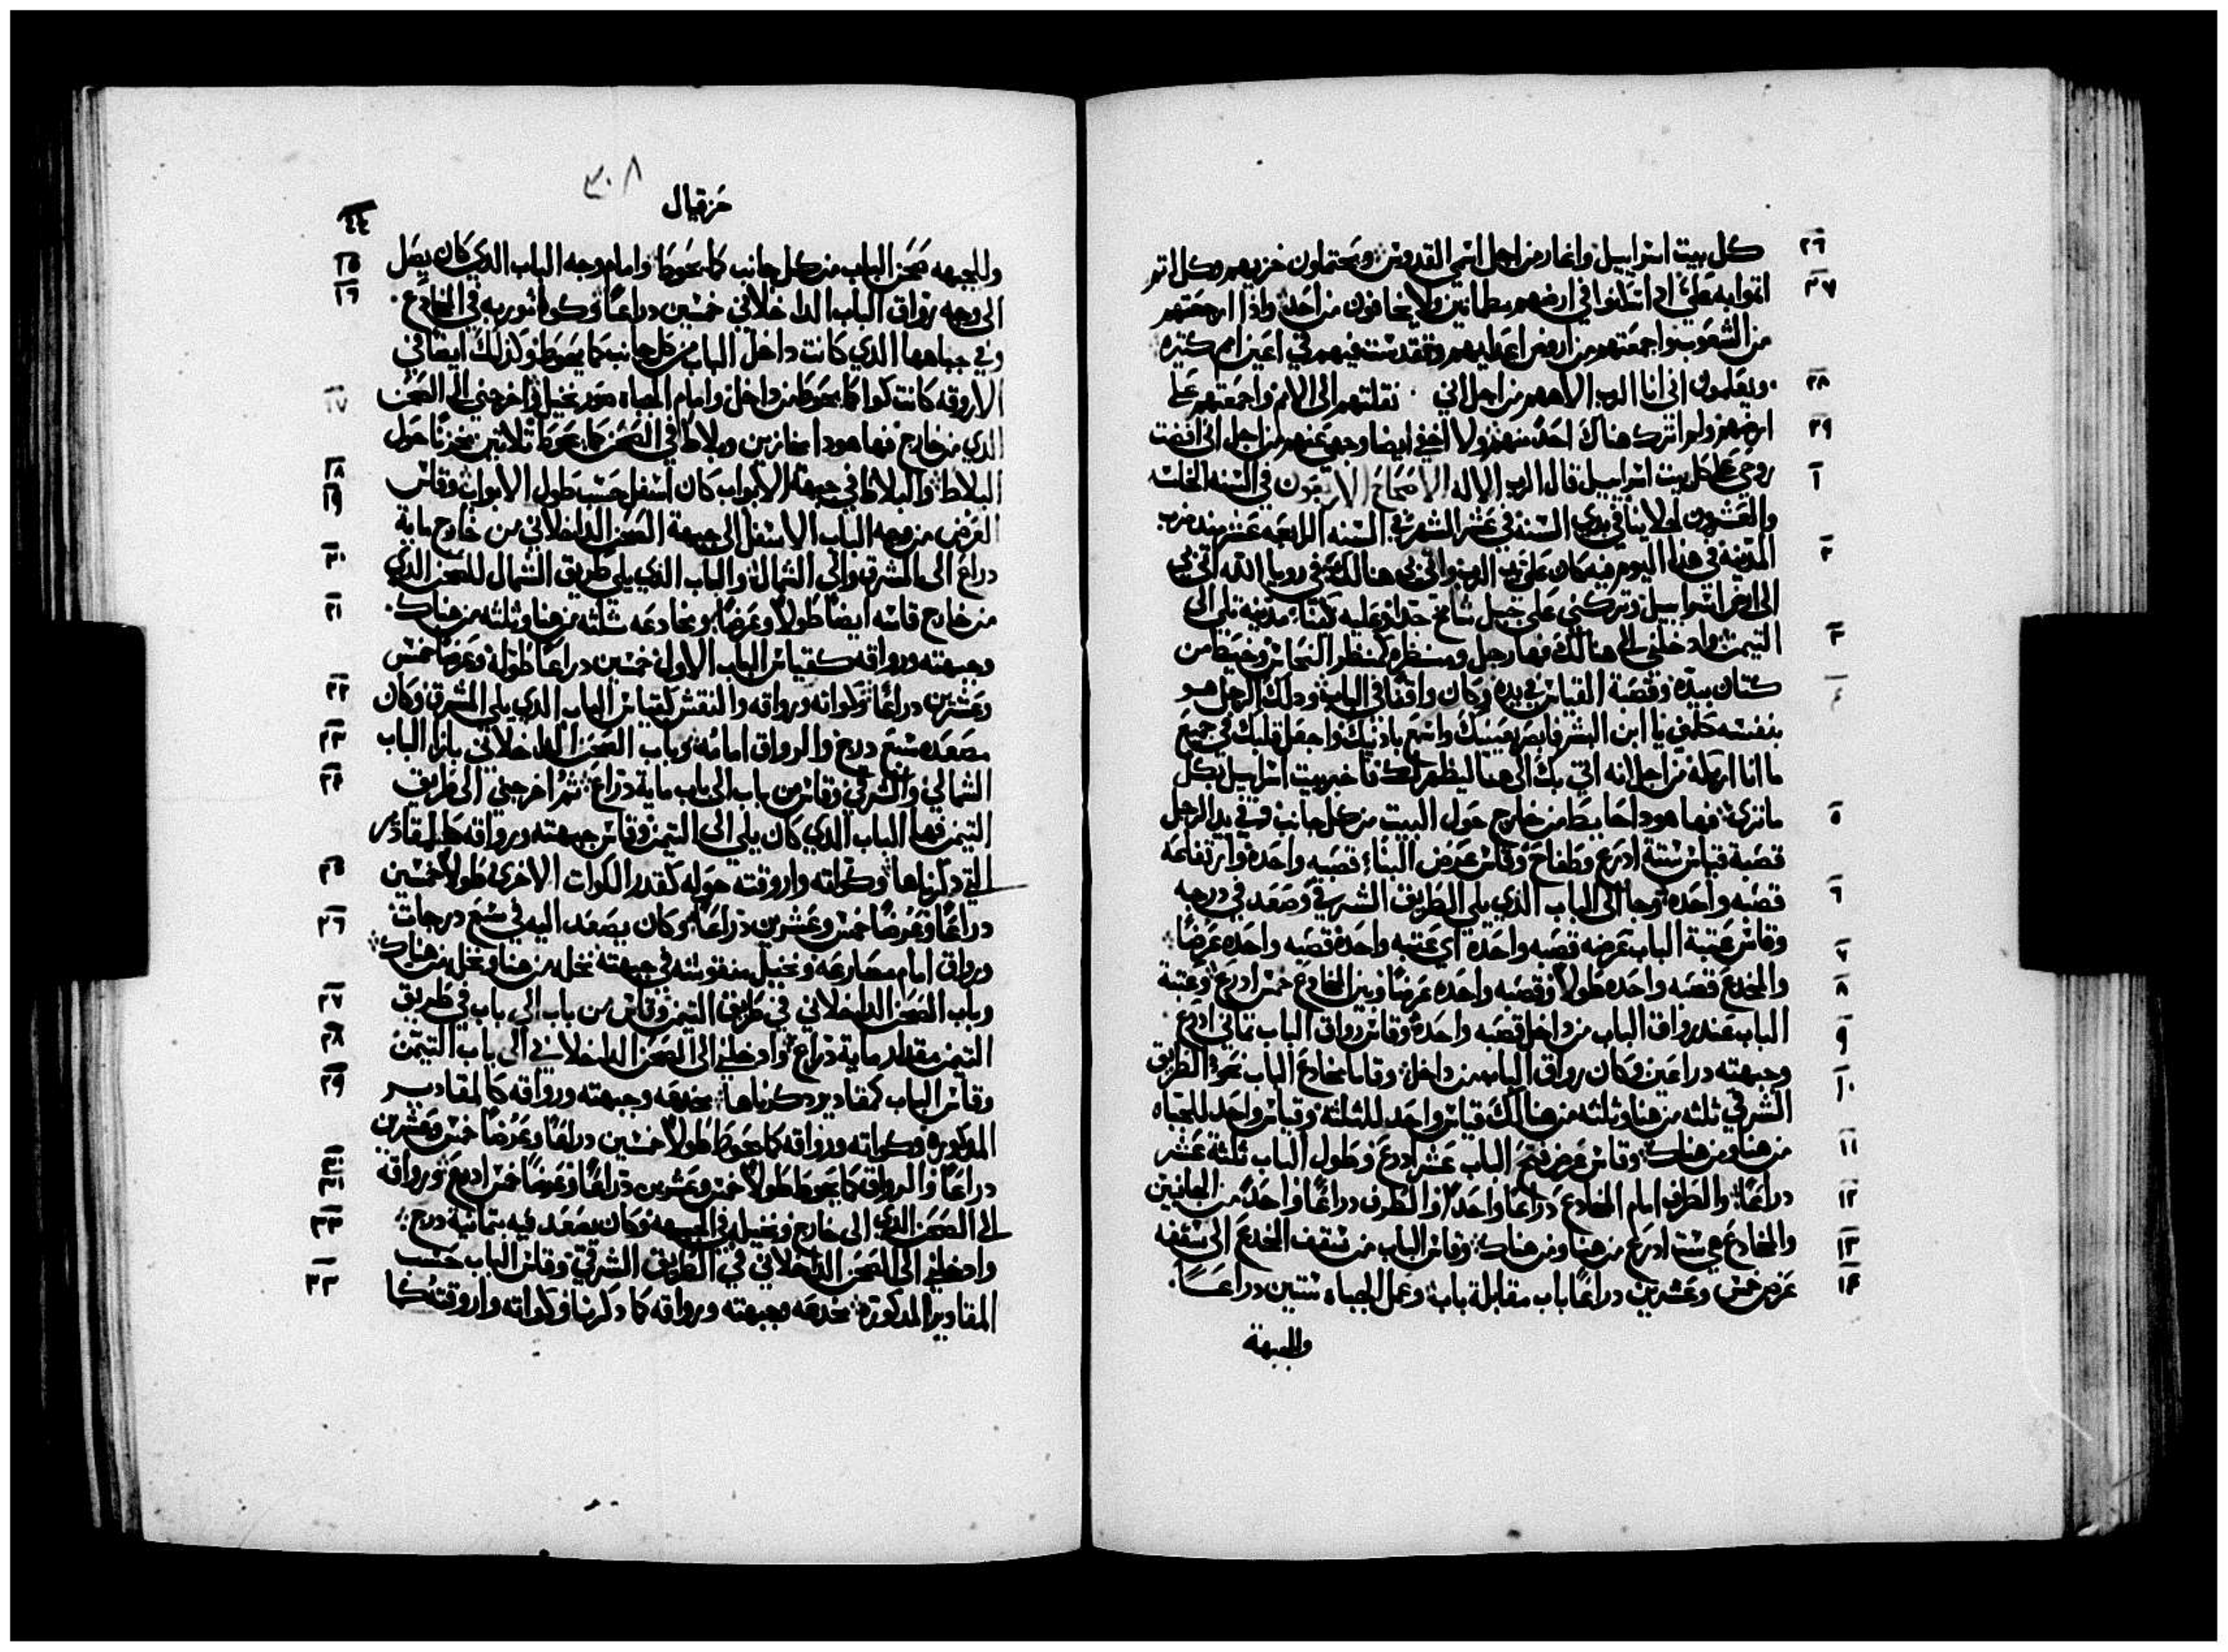 كل بيت اسراييل واغار من اجل اسمي القدوس ويحتملون خزيهم وكل اثم
٢٦
اثموا به علي اذا سكنوا في ارضهم مطمانين ولا يخافون من احد واذا ارجعتهم
٢٧
من الشعوب واجمعتهم من ارض اعداييهم وتقدست فيهم في اعين امم كتيره
ويعلمون اني انا الرب الاههم من اجل اني نقلتهم الى الامم واجمعتهم على
٢٨
ارضهم ولم اترك هناك احدا منهم ولا اخفي ايضا وجهي عنهم من اجل اني افضت
٢٩
روحي على كل بيت اسراييل قال الرب الاله الاصحاح الاربعون في السنه الخامسه
١
والعشرون لجلاينا في بدي السنه في عشر الشهر في السنه الرابعه عشر منذ ضرب
المدينه في هذا اليوم فيه كان علي يد الرب واتى بي هنالك في رويا الله اتى بي
٢
الى ارض اسراييل وتركني على جبل شامخ جدا وعليه كبنا مدينه تلي الى
التيمن وادخلني الى هنالك فها رجل ومنظره كمنظر النحاس وخيط من
٣
كتان بيده وقصبة القياس في يده وكان واقفا في الباب ودلك الرجل هو
٤
بنفسه كلمني يا ابن البشر فابصر بعينيك واسمع باذنيك واجعل قلبك في جميع
ما انا اريكه من اجل انه اتي بك الى هنا ليظهر لك فاخبر بيت اسراييل بكل
ما ترى فها هودا حايط من خارج حول البيت من كل جانب وفي يد الرجل
٥
قصبة قياس ستة ادرع وطفاح وقاس عرض البناء قصبه واحدة وارتفاعه
قصبه واحده وجا الى الباب الذي يلي الطريق الشرقي وصعد في درجه
٦
وقاس عتبة الباب عرضه قصبه واحدة اي عتبه واحدة قصبه واحده عرضا
والمخدع قصبه واحده طولا وقصبه واحده عرضا وبين المخادع خمس ادرع وعتبة
٧
٨
الباب عند رواق الباب من داخل قصبه واحدة وقاس رواق الباب تماني ادرع
٩
وجبهته دراعين وكان رواق الباب من داخل وقاما مخادع الباب نحو الطريق
١٠
الشرقي ثلثه من هنا وثلثه من هنالك قياس واحد للثلثة وقياس واحد للجباه
من هنا ومن هناك وقاس عرض فتح الباب عشر ادرع وطول الباب ثلثة عشر
١١
دراعا والطرف امام المخادع دراعا واحدا والطرف دراعا واحدا من الجانبين
١٢
والمخادع هي ست ادرع من هنا ومن هناك وقاس الباب من سقف المخدع الى سقفه
١٣
عرض خمس وعشرين دراعا باب مقابلة باب وعمل الجباه ستين دراعا
١٤
والجبهة
٣٠٨
حزقيال
٤٤
وللجبهه صحن الباب من كل جانب كما يحوط وامام وجه الباب الذي كان يصل
١٥
الى وجه رواق الباب الداخلاني خمسين دراعا وكوا موربه في المخادع
١٦
وفي جباهها الذي كانت داخل الباب من كل جانب كما يحوط وكذلك ايضا في
الاروقه كانت كوا كما يحوط من داخل وامام الجباه صور نخيل واخرجني الى الصحن
١٧
الذي من خارج فها هودا مخازين وبلاط في الصحن كما يحوط ثلاتين مخزنا حول
البلاط والبلاط في جبهة الابواب كان اسفل حسب طول الابواب وقاس
١٨
١٩
العرض من وجه الباب الاسفل الى جبهة الصحن الداخلاني من خارج ماية
دراع الى المشرق والى الشمال والباب الذي يلي طريق الشمال للصحن الذي
٢٠
من خارج قاسه ايضا طولا وعرضا ومخادعه ثلثه من هنا وثلثه من هناك
٢١
وجبهته ورواقه كقياس الباب الاول خمسين دراعا طوله وعرضا خمس
وعشرين دراعا وكواته ورواقه والنقش كقياس الباب الذي يلي المشرق وكان
٢٢
مصعده سبع درج والرواق امامه وباب الصحن الداخلاني بازا الباب
٢٣
الشمالي والشرقي وقاس من باب الى باب ماية دراع ثم اخرجني الى طريق
٢٤
التيمن فها الباب الذي كان يلي الى التيمن وقاس جبهته ورواقه كالمقادير
التي دكرناها وكواته واروقته حوله كقدر الكوات الاخرى طولا خمسين
٢٥
دراعا وعرضا خمس وعشرين دراعا وكان يصعد اليه في سبع درجات
٢٦
ورواق امام مصارعه ونخيل منقوشه في جبهته نخل من هنا ونخل من هناك
وباب الصحن الداخلاني في طريق التيمن وقاس من باب الى باب في طريق
٢٧
التيمن مقدار ماية دراع وادخلني الى الصحن الداخلاني الى باب التيمن
٢٨
وقاس الباب كمقادير دكرناها مخدعه وجبهته ورواقه كالمقادير
٢٩
المدكوره وكواته ورواقه كما يحوط طولا خمسين دراعا وعرضا خمس وعشرين
دراعا والرواق كما يحوط طولا خمس وعشرين دراعا وعرضا خمس ادرع ورواقه
٣٠
٣١
الى الصحن الذي الى خارج ونخيله في الجبهه وكان يصعد فيه بتمانية درج
٣٢
وادخلني الى الصحن الداخلاني في الطريق الشرقي وقاس الباب حسب
المقادير المدكورة مخدعه وجبهته ورواقه كما دكرنا وكواته واروقته كما
٣٣